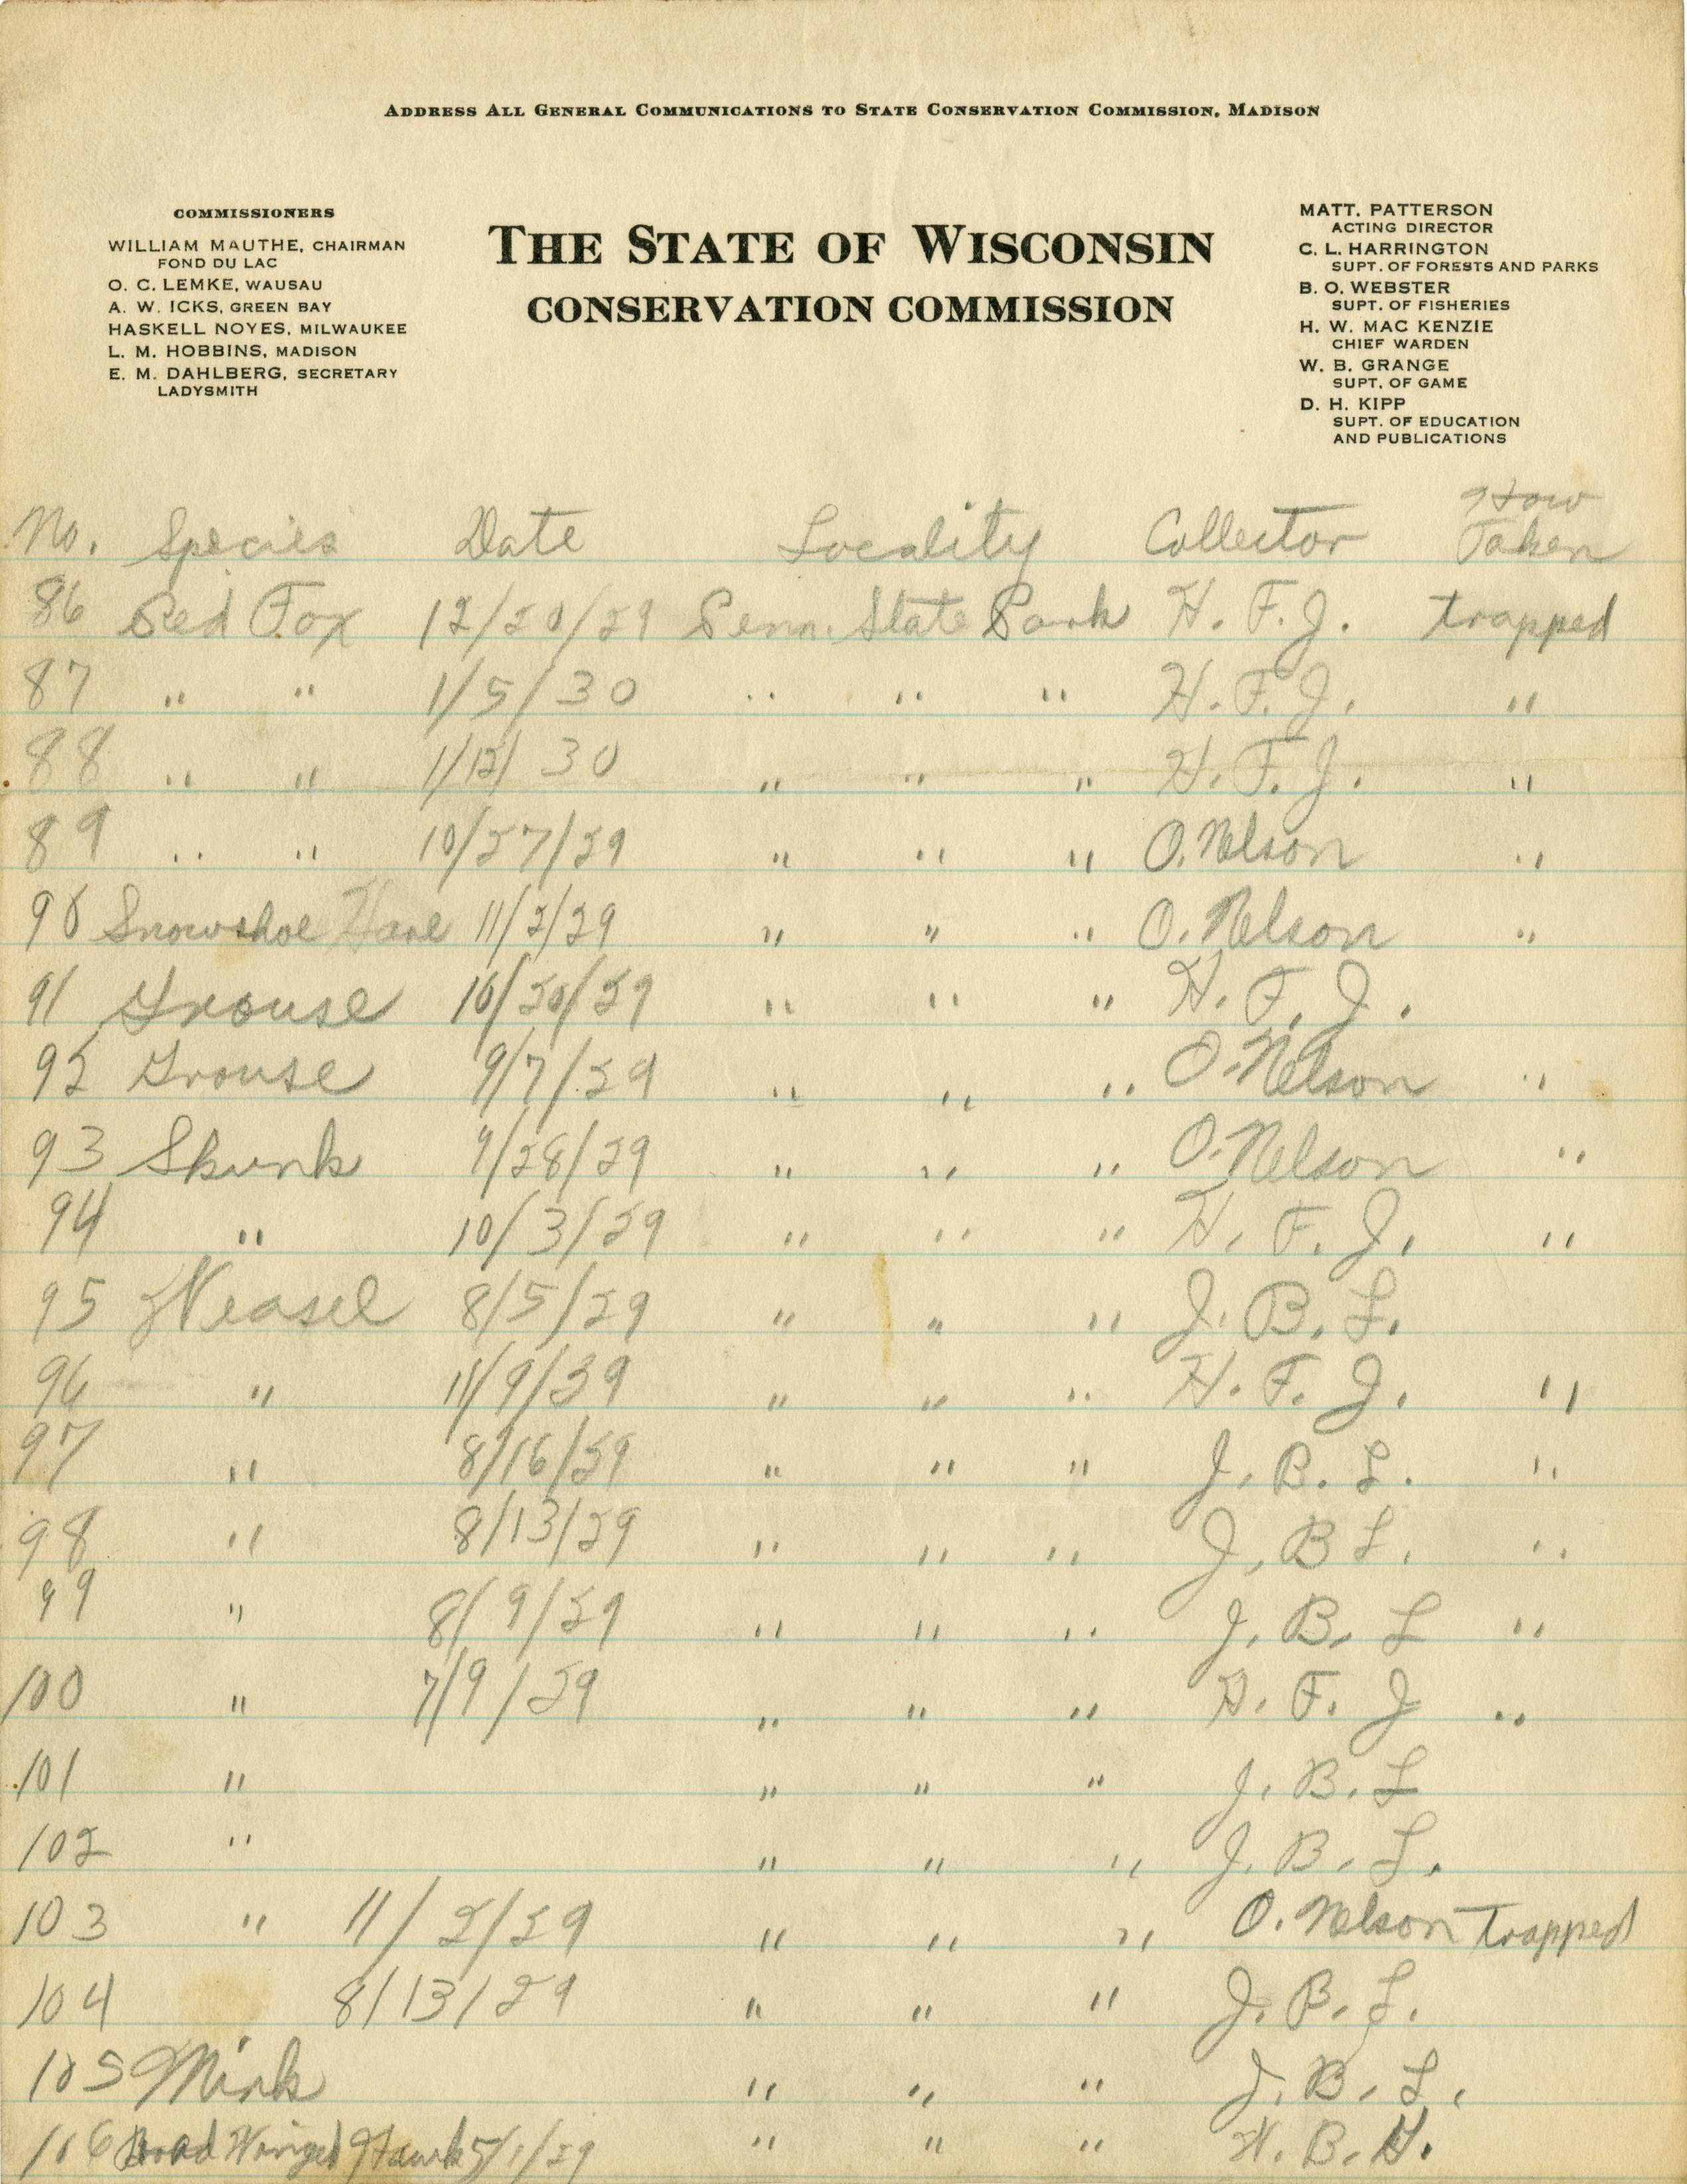 ADDRESS ALL GENERAL COMMUNICATIONS TO STATE CONSERVATION COMMISSION, MADISON
COMMISSIONERS
WILLIAM MAUTHE, CHAIRMAN
FOND DU LAC
O. C. LEMKE, WAUSAU
A. W. ICKS, GREEN BAY
HASKELL NOYES, MILWAUKEE
L. M. HOBBINS, MADISON
E. M. DAHLBERG, SECRETARY
LADYSMITH
THE STATE OF WISCONSIN
CONSERVATION COMMISSION
MATT. PATTERSON
ACTING DIRECTOR
C. L. HARRINGTON
SUPT. OF FORESTS AND PARKS
B. O. WEBSTER
SUPT. OF FISHERIES
H. W. MAC KENZIE
CHIEF WARDEN
W. B. GRANGE
SUPT. OF GAME
D. H. KIPP
SUPT. OF EDUCATION
AND PUBLICATIONS
No. Species Date Locality Collector How Taken
86 Red Fox 12/20/29 Penn. State Park H. F. J. trapped
87 " " 1/5/30 " " " H. F. J. "
88 " " 1/12/30 " " " H. F. J. "
89 " " 10/27/29 " " " O. Nelson "
90 Snowshoe Hare 11/2/29 " " " O. Nelson "
91 Grouse 10/20/29 " " " H. F. J.
92 Grouse 9/7/29 " " " O. Nelson "
93 Skunk 9/28/29 " " " O. Nelson "
94 " 10/3/29 " " " H. F. J. "
95 Weasel 8/5/29 " " " J. B. L.
96 " 11/9/39 " " " H. F. J. "
97 " 8/16/29 " " " J. B. L. "
98 " 8/13/29 " " " J. B L. "
99 " 8/9/29 " " " J. B. L "
100 " 7/9/29 " " " H. F. J "
101 " " " " J. B. L
102 " " " " J. B. L.
103 " 11/2/29 " " " O. Nelson Trapped
104 8/13/29 " " " J. B. L.
105 Mink " " " J. B. L.
106 Broad Winged Hawk 5/1/29 " " " W. B. G.